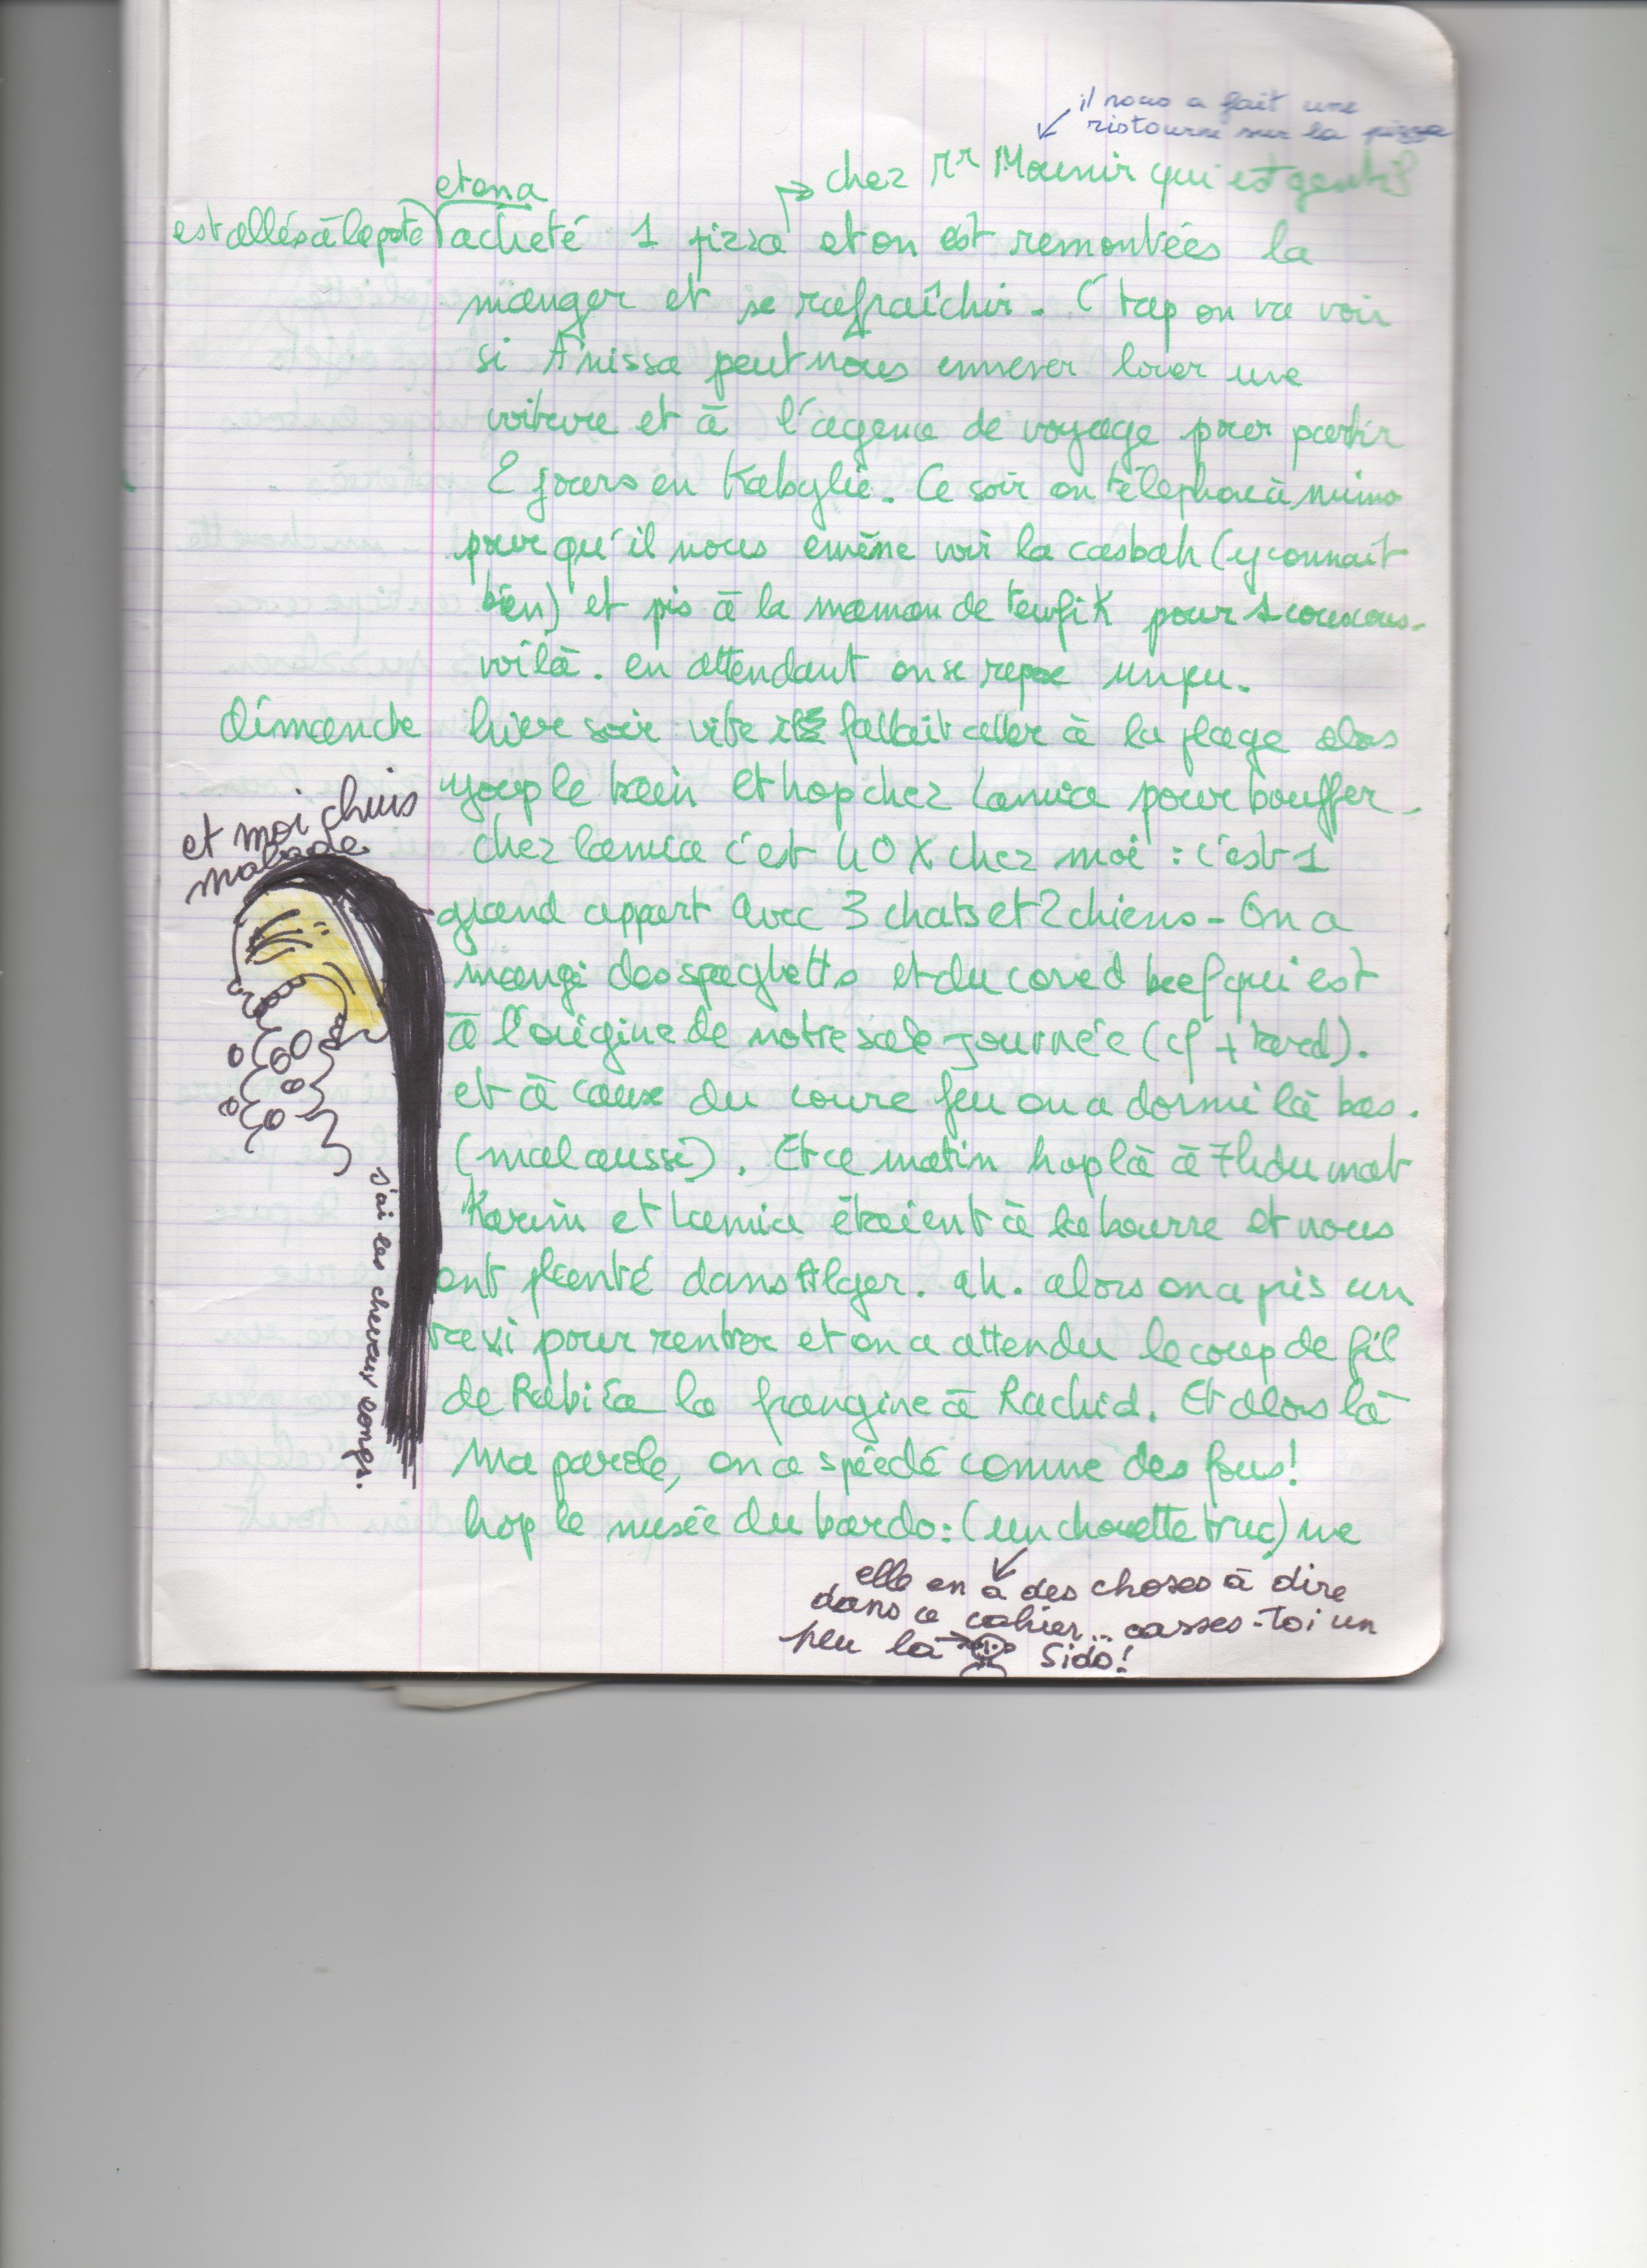 il nous a fait une
ristourne sur la pizza
chez Mr Mounir qui est gentil
et on a
est allés à la poste acheté 1 pizza et on est remontées la
manger et se rafraîchir. C t'ap on va voir
si Anissa peut nous emmener louer une
voiture et à l'agence de voyage pour partir
2 jours en Kabylie. Ce soir on téléphone à mimo
pour qu'il nous emène voir la casbah (y connait
bien) et pis à la maman de tewfik pour 1 couscous.
voilà. en attendant on se repose un peu.
dimanche hier soir vite il fallait aller à la plage alors
youp le bain et hop chez Lamia pour bouffer.
chez Lamia c'est 40 X chez moi : c'est 1
grand appart avec 3 chats et 2 chiens - On a
mangé des spaghettis et du corned beef qui est
à l'origine de notre sale journée (cf + tard).
et à cause du couvre feu on a dormi là bas.
(mal aussi). Et ce matin hop là à 7h du mat
Karim et Lamia étaient à la bourre et nous
ont planté dans Alger. ah. alors on a pris un
taxi pour rentrer et on a attendu le coup de fil
de Rabiéa la frangine à Rachid. Et alors là
ma parole, on a speedé comme des fous!
hop le musée du bardo: (un chouette truc) une
et moi chuis
malade
j'ai les cheveux longs.
elle en a des choses à dire
dans ce cahier... casses-toi un
peu la Sido!